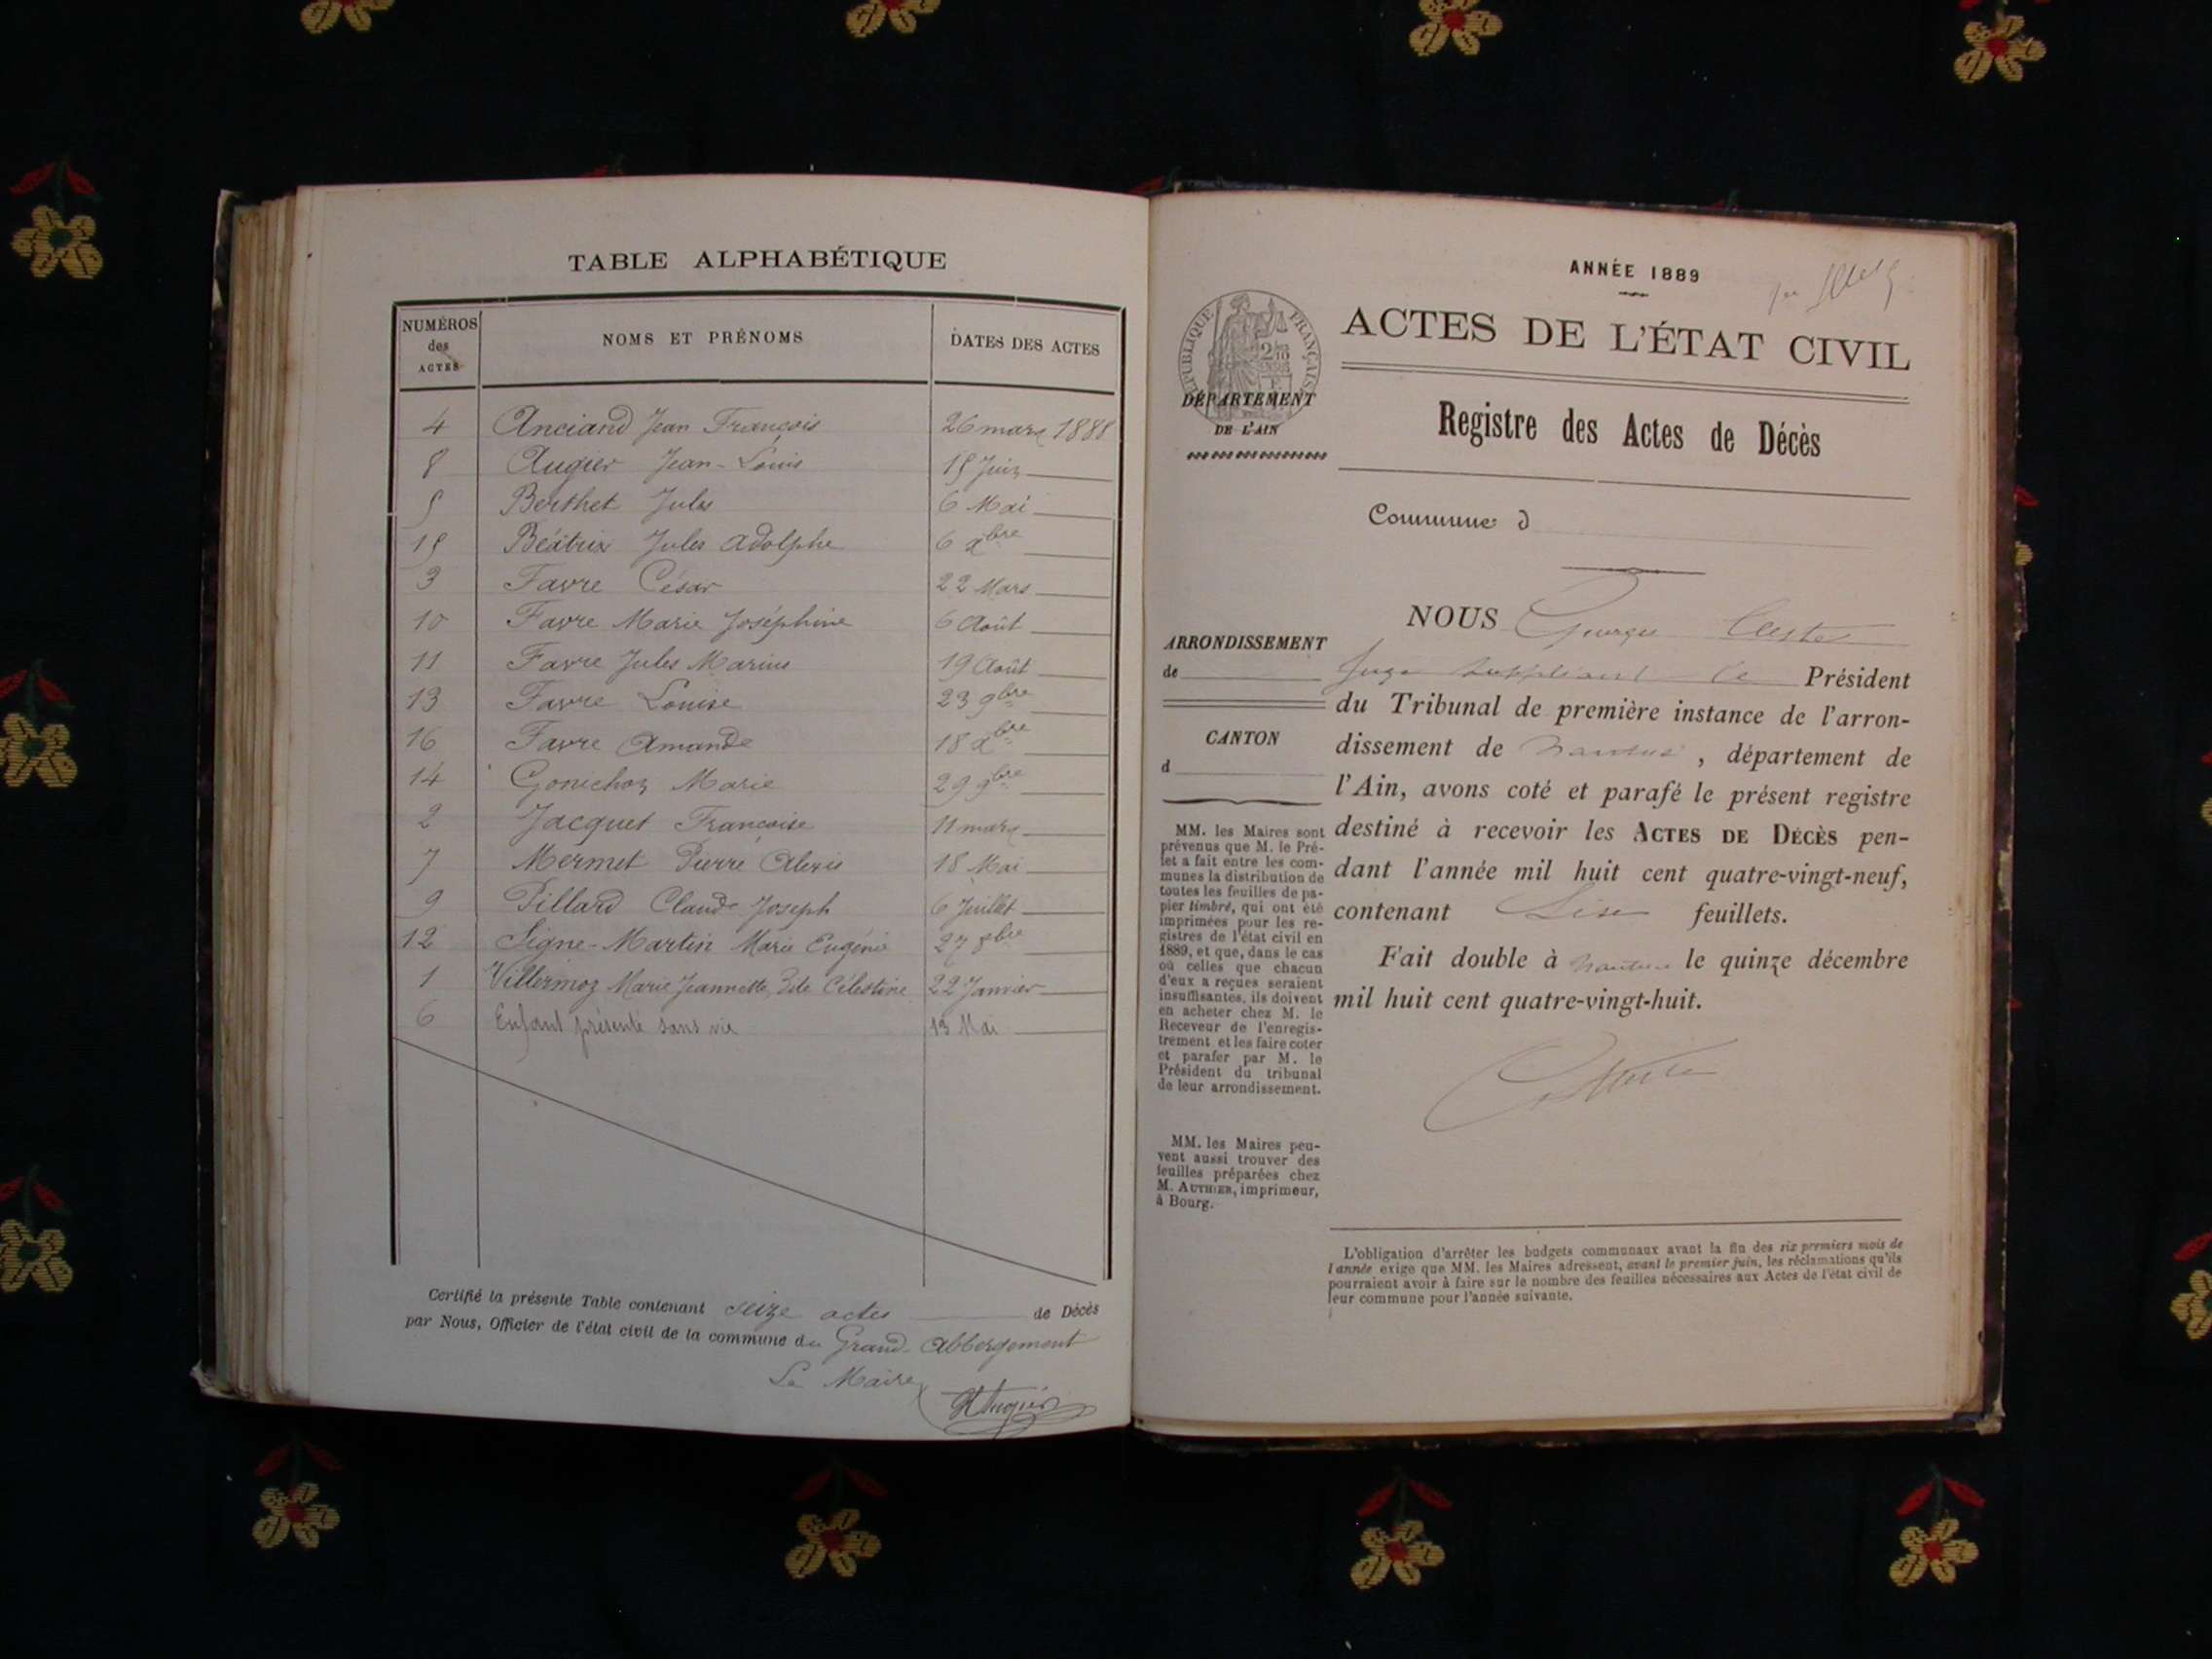 TABLE ALPHABÉTIQUE
NUMÉROS des ACTES
NOMS ET PRÉNOMS
DATES DES ACTES
4 Anciand Jean François 26 mars 1888
8 Augier Jean-Louis 15 Juin
5 Berthet Jules 6 Mai
15 Béatrix Jules Adolphe 6 Xbre
3 Favre César 22 Mars
10 Favre Marie Joséphine 6 Août
11 Favre Jules Marius 19 Août
13 Favre Louise 23 9bre
16 Favre Amande 18 Xbre
14 Gonichon Marie 29 9bre
2 Jacquet Françoise 11 mars
7 Mermet Pierre Alexis 18 Mai
9 Pillard Claude Joseph 6 Juillet
12 Signe-Martin Marie Eugénie 27 8bre
1 Villermoz Marie Jeannette, Célestine 22 Janvier
6 Enfant présenté sans vie 13 Mai
Certifié la présente Table contenant seize actes de Décès
par Nous, Officier de l'état civil de la commune du Grand-Abbergement
Le Maire
ANNÉE 1889
ACTES DE L'ÉTAT CIVIL
RÉPUBLIQUE FRANÇAISE
DÉPARTEMENT
DE L'AIN
Registre des Actes de Décès
Commune d
ARRONDISSEMENT
de
CANTON
d
MM. les Maires sont
prévenus que M. le Pré-
fet a fait entre les com-
munes la distribution de
toutes les feuilles de pa-
pier timbré, qui ont été
imprimées pour les re-
gistres de l'état civil en
1889, et que, dans le cas
où celles que chacun
d'eux a reçues seraient
insuffisantes, ils doivent
en acheter chez M. le
Receveur de l'enregis-
trement et les faire coter
et parafer par M. le
Président du tribunal
de leur arrondissement.
MM. les Maires peu-
vent aussi trouver des
feuilles préparées chez
M. AUTHIER, imprimeur,
à Bourg.
NOUS Georges
Juge suppléant le Président
du Tribunal de première instance de l'arron-
dissement de Nantua, département de
l'Ain, avons coté et parafé le présent registre
destiné à recevoir les ACTES DE DÉCÈS pen-
dant l'année mil huit cent quatre-vingt-neuf,
contenant feuillets.
Fait double à Nantua le quinze décembre
mil huit cent quatre-vingt-huit.
L'obligation d'arrêter les budgets communaux avant la fin des six premiers mois de
l'année exige que MM. les Maires adressent, avant le premier juin, les réclamations qu'ils
pourraient avoir à faire sur le nombre des feuilles nécessaires aux Actes de l'état civil de
leur commune pour l'année suivante.